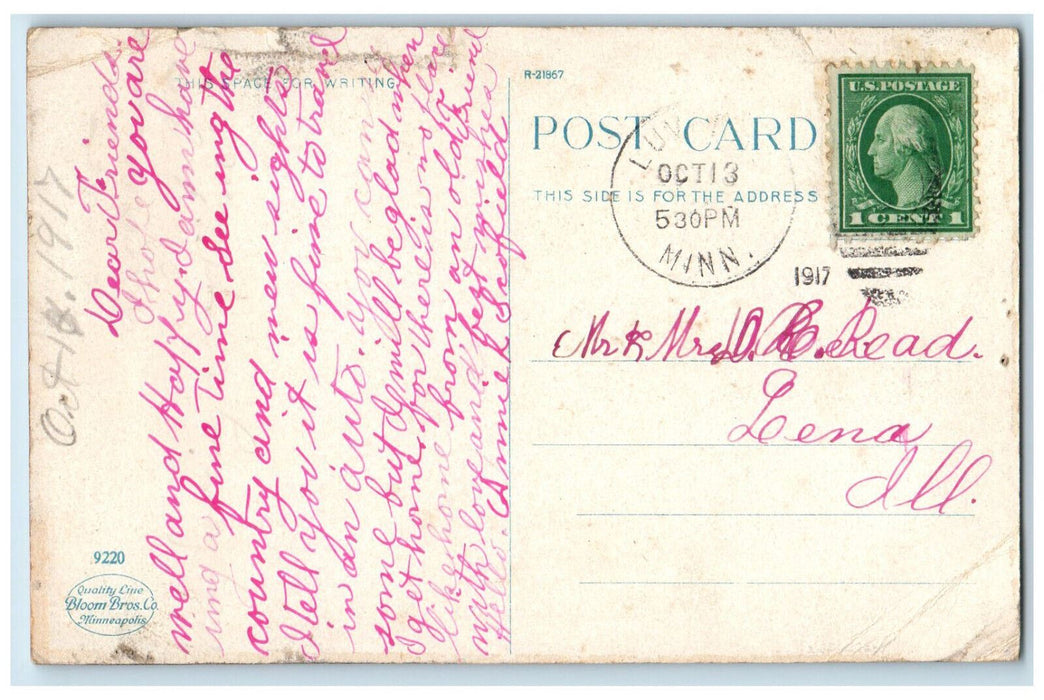 THIS SPACE FOR WRITING
Dear Friends.
I hope you are
well and Happy. I am have
ing a fine Time See ing the
country and new sights
I tell you it is fine to travel
in an auto. you can
some but I will be glad when
I get home. for there is no place
like home from an old Friend
with love and best wishes
Hello. Annie Scofield
Oct 18. 1917
9220
Quality Line
Bloom Bros. Co.
Minneapolis
R-21867
POST CARD
THIS SIDE IS FOR THE ADDRESS
U.S. POSTAGE
1 CENT 1
LUV
OCT 13
530PM
MINN.
1917
Mr & Mrs D. C. Read.
Lena
Ill.